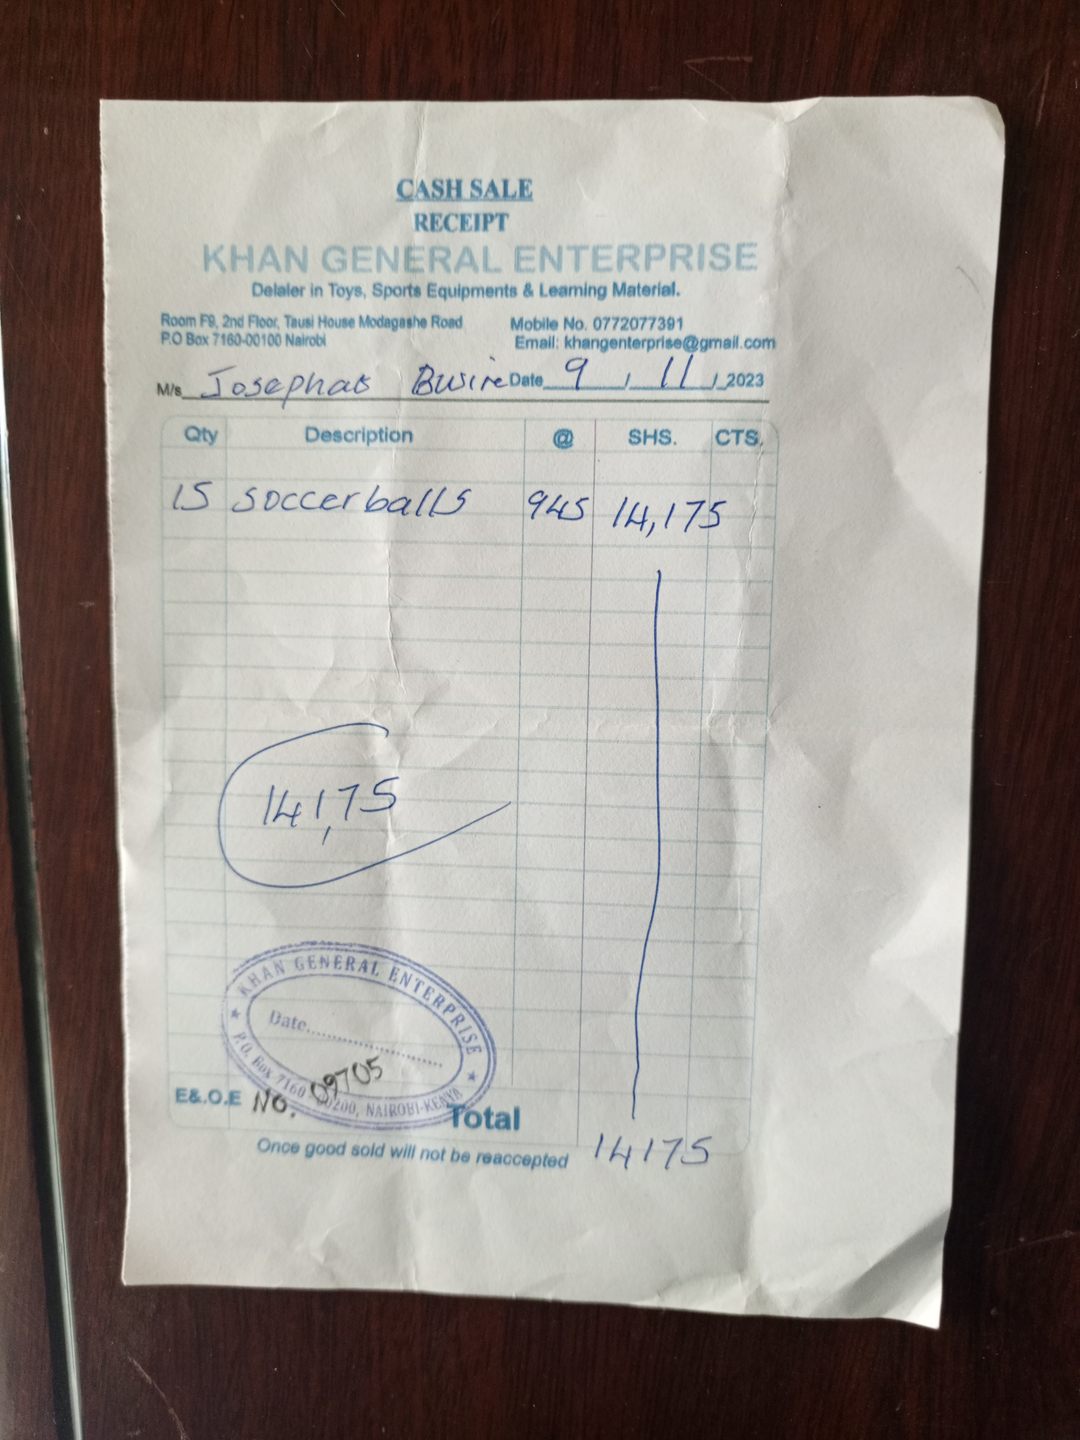 CASH SALE
RECEIPT
KHAN GENERAL ENTERPRISE
Delaler in Toys, Sports Equipments & Learning Material.
Room F9, 2nd Floor, Tausi House Modagashe Road
P.O Box 7160-00100 Nairobi
Mobile No. 0772077391
Email: khangenterprise@gmail.com
M/s Josephat Busire Date 9 / 11 / 2023
Qty Description @ SHS. CTS.
15 soccerballs 945 14,175
14,175
KHAN GENERAL ENTERPRISE
Date
P.O. Box 7160 - 00200, NAIROBI-KENYA
E&.O.E NO. 09705
Total 14175
Once good sold will not be reaccepted